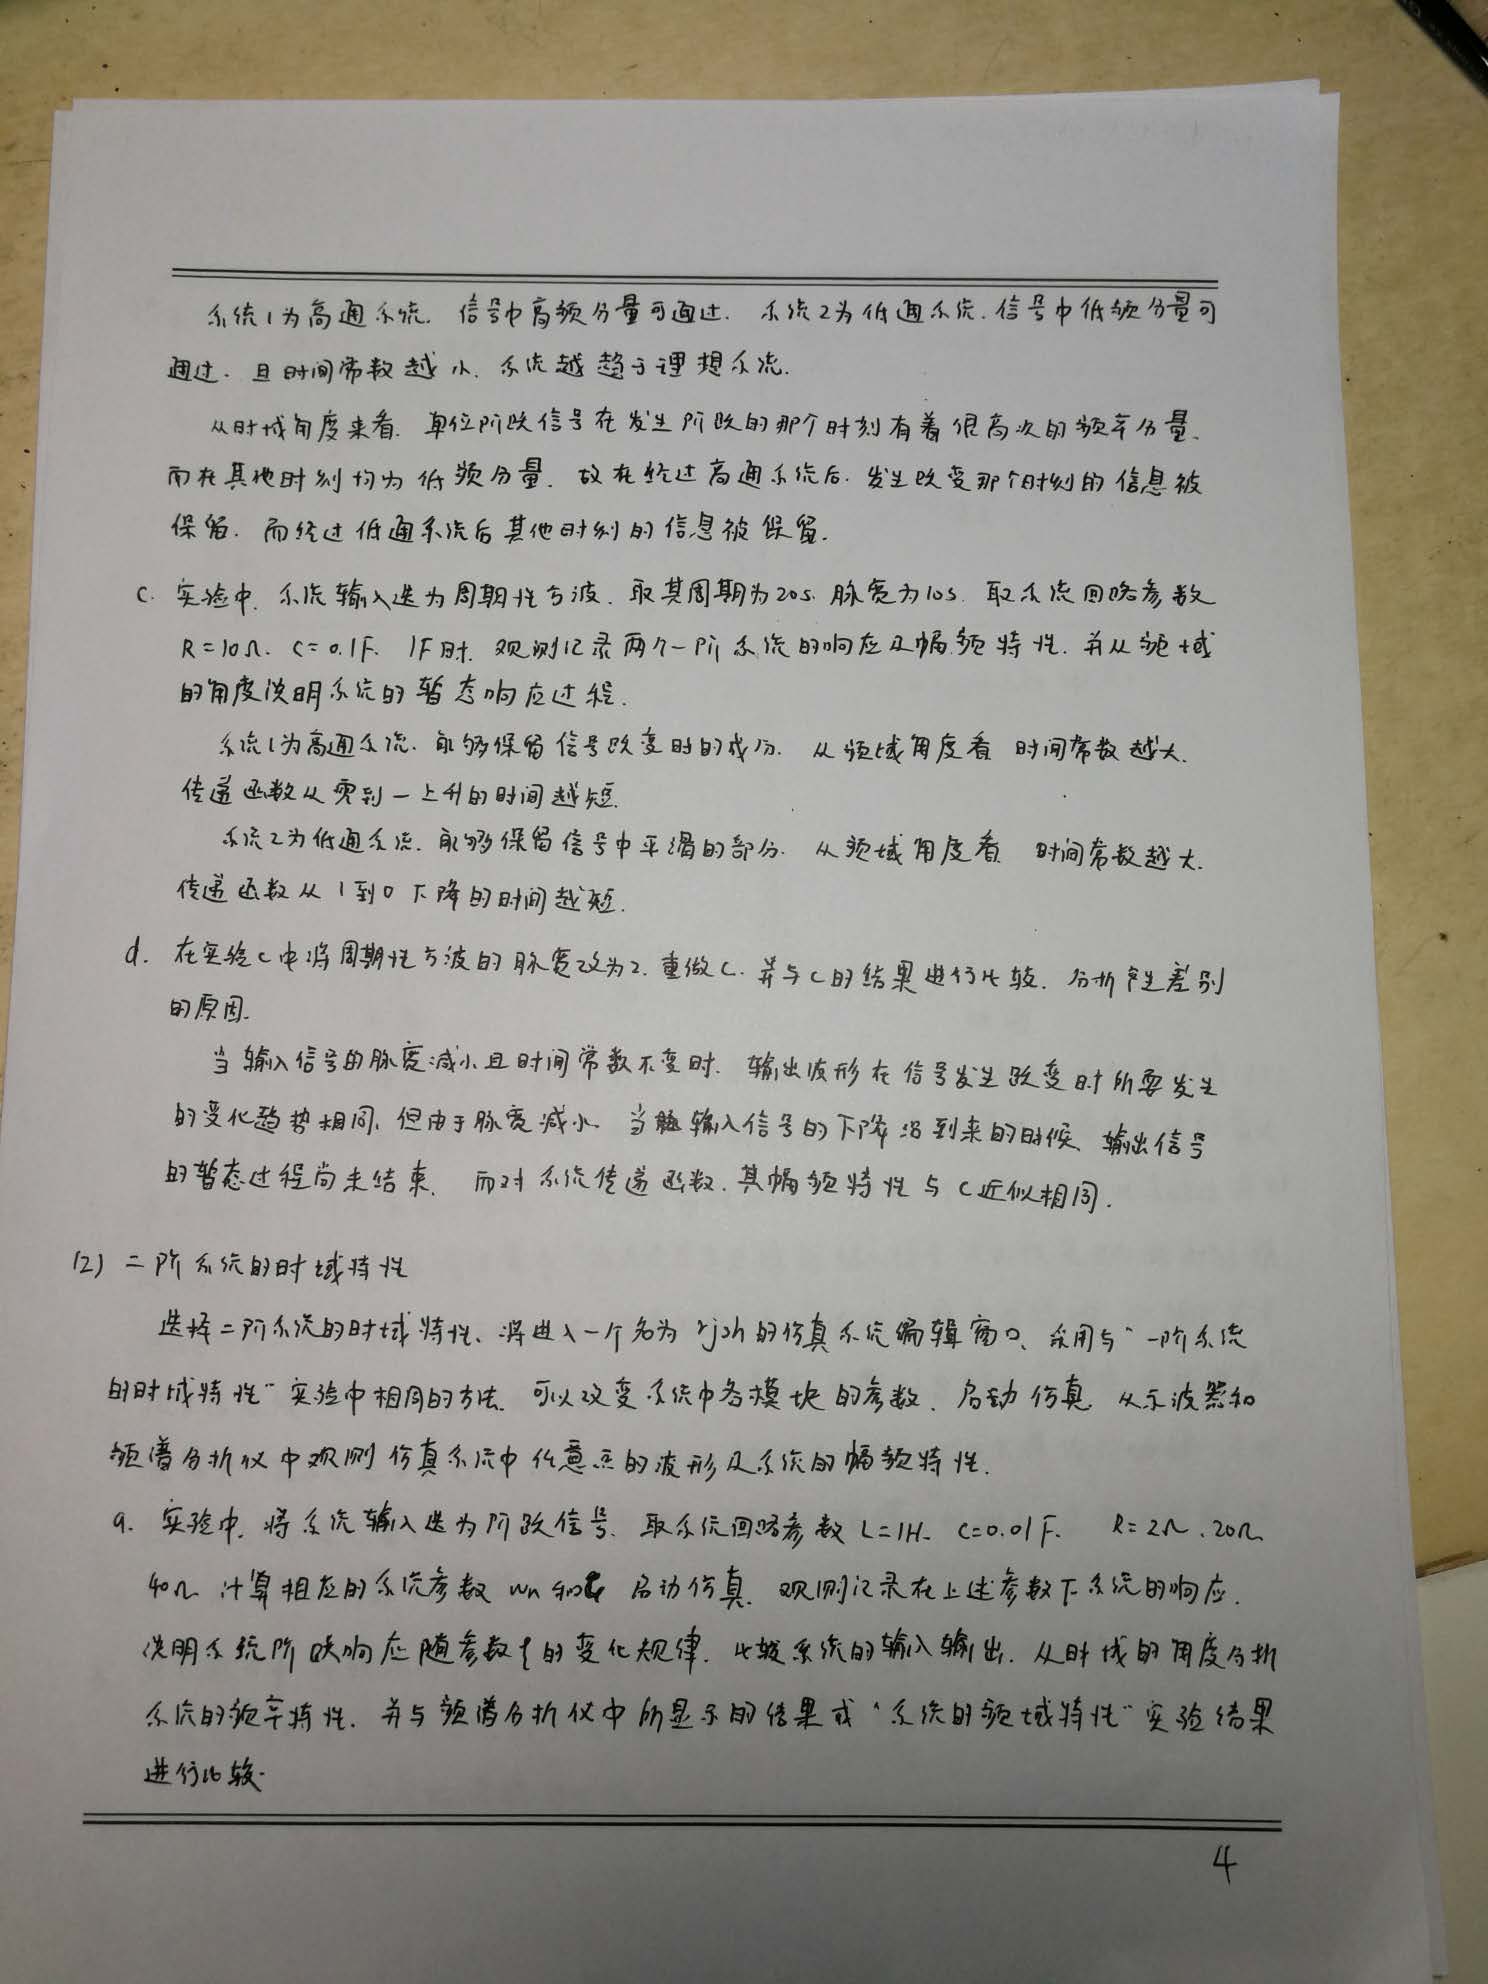 系统1为高通系统. 信号中高频分量可通过. 系统2为低通系统. 信号中低频分量可
通过. 且时间常数越小. 系统越趋于理想系统.
从时域角度来看. 单位阶跃信号在发生阶跃的那个时刻有着很高次的频率分量.
而在其他时刻均为低频分量. 故在经过高通系统后. 发生跃变那个时刻的信息被
保留. 而经过低通系统后其他时刻的信息被保留.
c. 实验中. 系统输入选为周期性方波. 取其周期为20s. 脉宽为10s. 取系统回路参数
R=10Ω. C=0.1F. 1F时. 观测记录两个一阶系统的响应及幅频特性. 并从频域
的角度说明系统的暂态响应过程.
系统1为高通系统. 能够保留信号跃变时的成分. 从频域角度看 时间常数越大.
传递函数从零到一上升的时间越短.
系统2为低通系统. 能够保留信号中平滑的部分. 从频域角度看 时间常数越大.
传递函数从1到0下降的时间越短.
d. 在实验c中将周期性方波的脉宽改为2. 重做c. 并与c的结果进行比较. 分析产生差别
的原因.
当输入信号的脉宽减小且时间常数不变时. 输出波形在信号发生跃变时所要发生
的变化趋势相同, 但由于脉宽减小. 当输入信号的下降沿到来的时候, 输出信号
的暂态过程尚未结束. 而对系统传递函数. 其幅频特性与c近似相同.
(2) 二阶系统的时域特性
选择二阶系统的时域特性、将进入一个名为rj2h的仿真系统编辑窗口、采用与“一阶系统
的时域特性”实验中相同的方法. 可以改变系统中各模块的参数. 启动仿真. 从示波器和
频谱分析仪中观测仿真系统中任意点的波形及系统的幅频特性.
a. 实验中. 将系统输入选为阶跃信号. 取系统回路参数L=1H. C=0.01F. R=2Ω.20Ω
40Ω 计算相应的系统参数ωn和ζ 启动仿真. 观测记录在上述参数下系统的响应.
说明系统阶跃响应随参数ζ的变化规律. 比较系统的输入输出. 从时域的角度分析
系统的频率特性. 并与频谱分析仪中所显示的结果或“系统的频域特性”实验结果
进行比较.
4